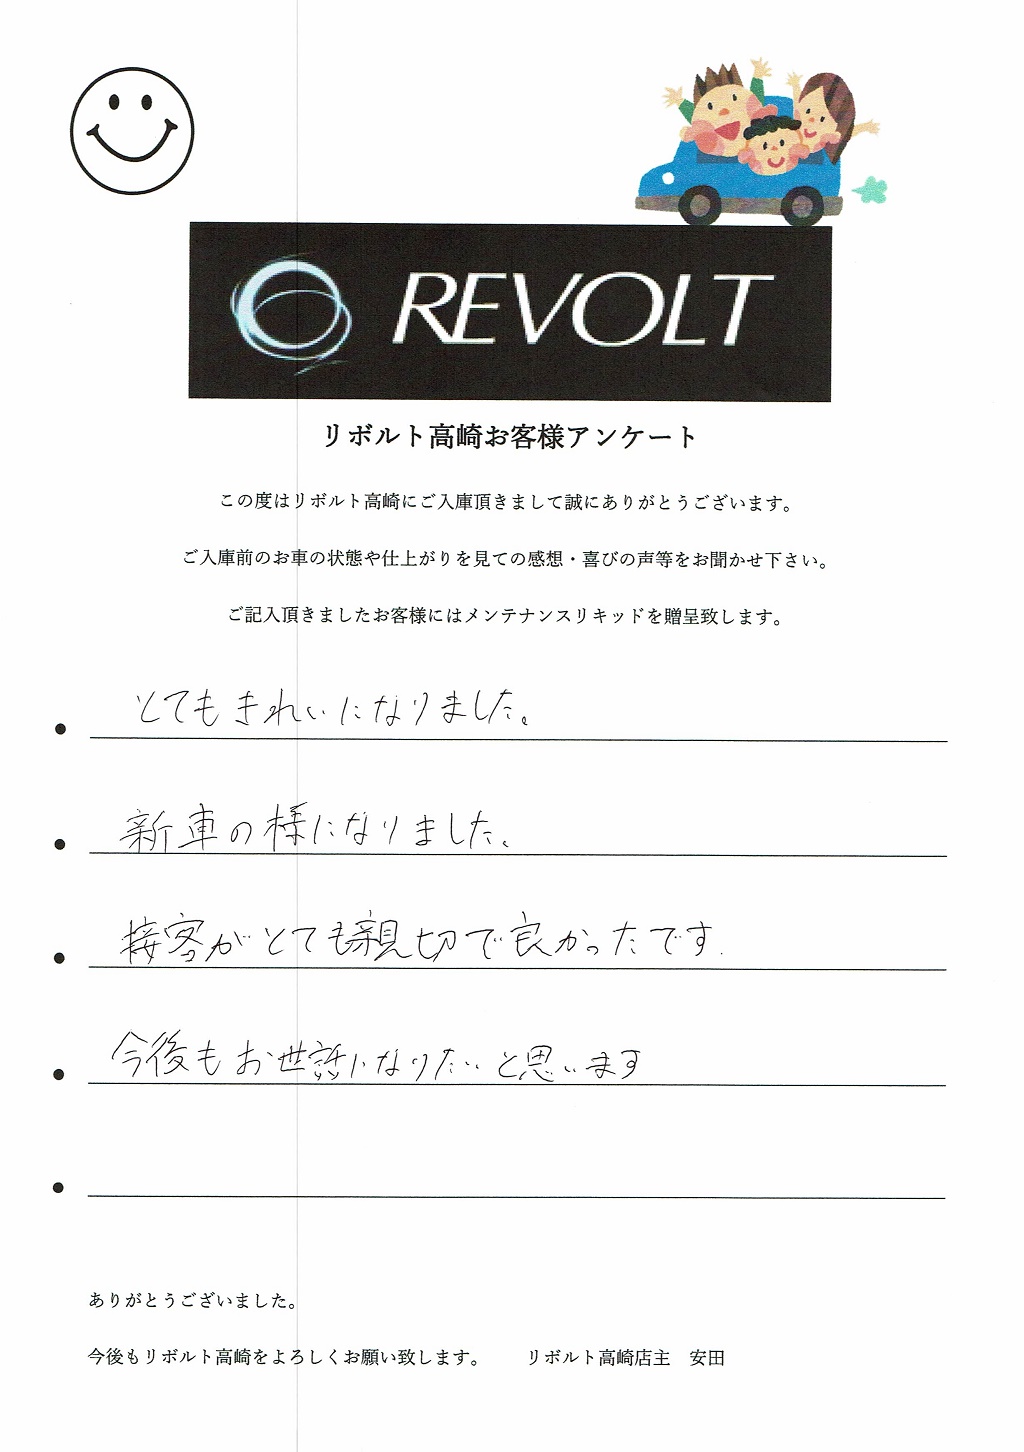 REVOLT
リボルト高崎お客様アンケート
この度はリボルト高崎にご入庫頂きまして誠にありがとうございます。
ご入庫前のお車の状態や仕上がりを見ての感想・喜びの声等をお聞かせ下さい。
ご記入頂きましたお客様にはメンテナンスリキッドを贈呈致します。
とてもきれいになりました。
新車の様になりました。
接客がとても親切で良かったです.
今後もお世話になりたいと思います
ありがとうございました。
今後もリボルト高崎をよろしくお願い致します。 リボルト高崎店主 安田